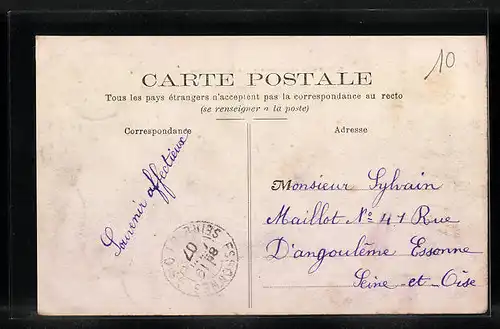 10
CARTE POSTALE
Tous les pays étrangers n'acceptent pas la correspondance au recto
(se renseigner a la poste)
Correspondance
Adresse
Souvenir affectueux
Monsieur Sylvain
Maillot N° 41 Rue
D'angoulême Essonne
Seine-et-Oise
07